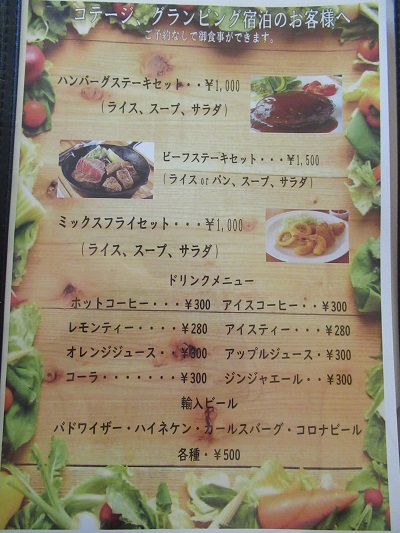 コテージ、グランピング宿泊のお客様へ
ご予約なしで御食事ができます。
ハンバーグステーキセット・・￥1,000
(ライス、スープ、サラダ)
ビーフステーキセット・・・￥1,500
(ライス or パン、スープ、サラダ)
ミックスフライセット・・・・￥1,000
(ライス、スープ、サラダ)
ドリンクメニュー
ホットコーヒー・・・￥300 アイスコーヒー・・￥300
レモンティー・・・・￥280 アイスティー・・・￥280
オレンジジュース・・￥300 アップルジュース・￥300
コーラ・・・・・・・￥300 ジンジャエール・・￥300
輸入ビール
バドワイザー・ハイネケン・カールスバーグ・コロナビール
各種・￥500